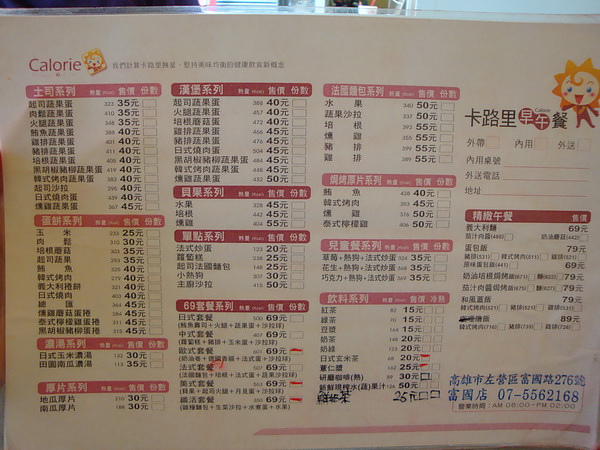 Calorie
我們計算卡路里熱量，堅持美味均衡的健康飲食新概念
土司系列 熱量 售價 份數
起司蔬果蛋 323 35元
肉鬆蔬果蛋 410 35元
火腿蔬果蛋 348 35元
鮪魚蔬果蛋 388 40元
雞排蔬果蛋 431 40元
豬排蔬果蛋 411 40元
培根蔬果蛋 406 40元
黑胡椒豬柳蔬果蛋 419 40元
韓式烤肉蔬果蛋 383 40元
起司沙拉 395 40元
日式燒肉蔬果蛋 439 40元
燻雞蔬果蛋 367 45元
蛋餅系列 熱量 售價 份數
玉米 233 25元
肉鬆 310 30元
培根蘑菇 303 35元
起司蔬菜 293 35元
鮪魚 320 40元
韓式烤肉 279 40元
義大利捲餅 321 40元
日式燒肉 403 40元
總匯 364 45元
燻雞蘑菇蛋捲 384 45元
泰式檸檬雞蛋捲 311 45元
黑胡椒豬柳蛋捲 315 45元
濃湯系列 熱量 售價 份數
日式玉米濃湯 132 30元
田園南瓜濃湯 113 35元
厚片系列 熱量 售價 份數
地瓜厚片 210 30元
南瓜厚片 188 30元
漢堡系列 熱量 售價 份數
起司蔬果蛋 388 40元
火腿蔬果蛋 457 40元
培根蘑菇蛋 472 45元
雞排蔬果蛋 466 45元
豬排蔬果蛋 476 45元
日式燒肉蛋 504 50元
黑胡椒豬柳蔬果蛋 484 50元
韓式烤肉蔬果蛋 448 50元
燻雞蔬果蛋 432 50元
貝果系列 熱量 售價 份數
水果 328 45元
培根 442 45元
燻雞 404 55元
單點系列 熱量 售價 份數
法式炒蛋 123 20元
蘿蔔糕 238 25元
起司法國麵包 148 25元
小熱狗 307 30元
主廚沙拉 415 50元
69套餐系列 熱量 售價 份數
日式套餐 500 69元
(鮪魚壽司+火腿+蔬果蛋+沙拉球)
中式套餐 407 69元
(蘿蔔糕+豬排+玉米蛋+沙拉球)
歐式套餐 601 69元
法式套餐 507 69元
(法國麵包+培根+法式蛋+蔬果沙拉球)
美式套餐 563 69元
(貝果+火腿+月見蛋+沙拉球)
纖活套餐 350 69元
(雜糧麵包+生菜沙拉+水煮蛋+水果)
法國麵包系列 熱量 售價 份數
水果 340 50元
蔬果沙拉 237 50元
培根 393 55元
燻雞 355 55元
豬排 399 55元
雞排 389 55元
焗烤厚片系列 熱量 售價 份數
鮪魚 438 40元
韓式烤肉 393 45元
燻雞 316 50元
泰式檸檬雞 430 50元
兒童餐系列 熱量 售價 份數
草莓+熱狗+法式炒蛋 324 35元
花生+熱狗+法式炒蛋 368 35元
巧克力+熱狗+法式炒蛋 369 35元
飲料系列 熱量 售價 冷熱
紅茶 82 15元
綠茶 70 15元
豆漿 164 15元
奶茶 144 20元
奶綠 132 20元
日式玄米茶 68 20元
薏仁漿 162 25元
研磨咖啡(熱) 39 30元
新鮮現榨水(蔬)果汁 126 50元
25元
Calorie
卡路里早午餐
外帶 內用 外送
內用桌號
外送電話
地址
精緻午餐 售價
義大利麵 69元
茄汁肉醬(495) 奶油蘑菇(442)
蛋包飯 79元
豬排(531) 韓式烤肉(511) 雞排(521)
原味蛋包飯(441) 69元
奶油培根焗烤飯(671) 麵(623) 79元
茄汁肉醬焗烤飯(671) 麵(623) 79元
和風蓋飯 79元
韓式烤肉(511) 豬排(531) 雞排(521)
89元
韓式烤肉(716) 豬排(735) 雞排(726)
高雄市左營區富國路276號
富國店 07-5562168
營業時間：AM 06:00~PM 02:00